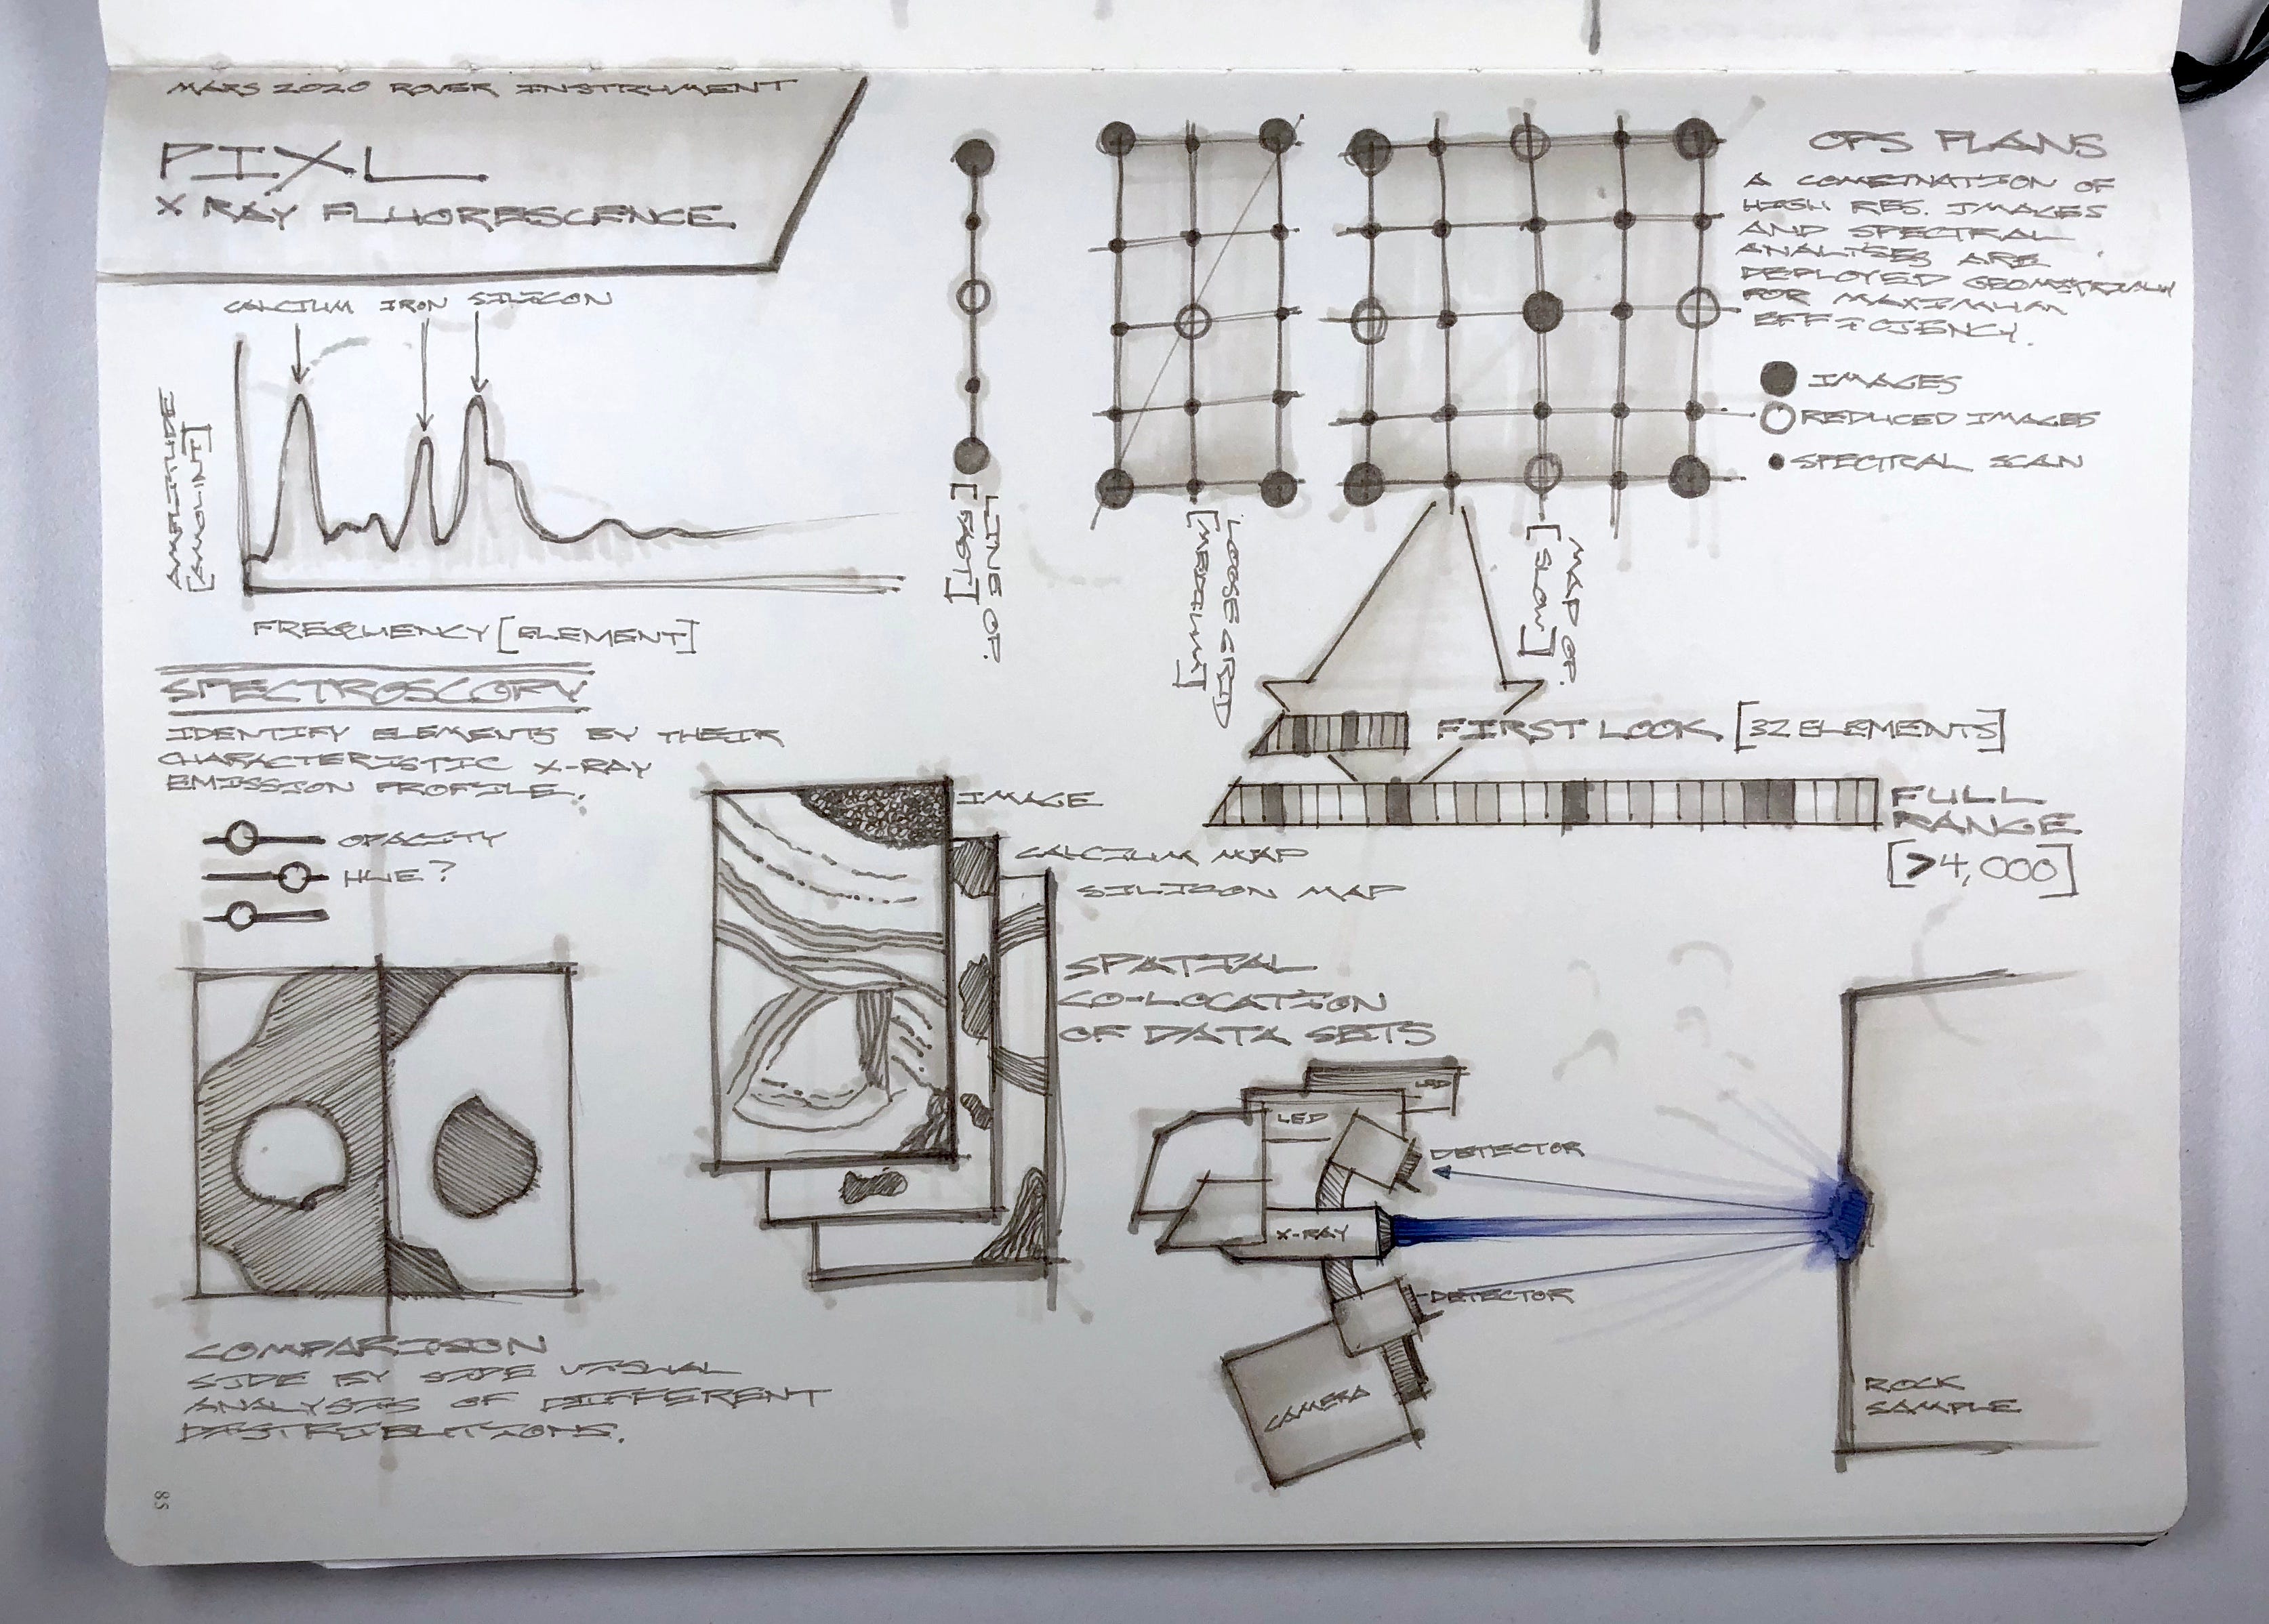 MARS 2020 ROVER INSTRUMENT
PIXL
X RAY FLUORESCENCE
CALCIUM IRON SILICON
AMPLITUDE
[AMOUNT]
FREQUENCY [ELEMENT]
SPECTROSCOPY
IDENTIFY ELEMENTS BY THEIR
CHARACTERISTIC X-RAY
EMISSION PROFILE.
OPACITY
HUE?
COMPARISON
SIDE BY SIDE VISUAL
ANALYSIS OF DIFFERENT
DISTRIBUTIONS.
85
LINE OP.
[FAST]
LOOSE GRID
[MEDIUM]
MAP OP.
[SLOW]
OPS PLANS
A COMBINATION OF
HIGH RES. IMAGES
AND SPECTRAL
ANALYSES ARE
DEPLOYED
FOR MAXIMUM
EFFICIENCY.
IMAGES
REDUCED IMAGES
SPECTRAL SCAN
FIRST LOOK [32 ELEMENTS]
FULL
RANGE
[>4,000]
IMAGE
CALCIUM MAP
SILICON MAP
SPATIAL
CO-LOCATION
OF DATA SETS
LED
LED
DETECTOR
X-RAY
DETECTOR
CAMERA
ROCK
SAMPLE